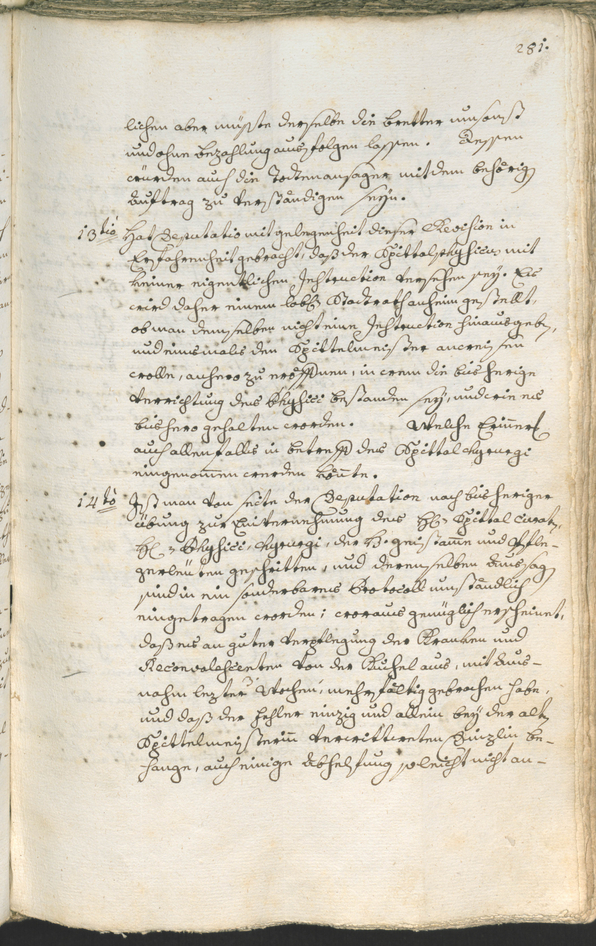 281.
lichen aber müsste derselbe die bretter umsonst
und ohne bezahlung ausfolgen lassen. Dessen
würden auch die Todtenansager mit dem behörig
Auftrag zu verständigen seyn.
13tiò Hat Deputatio mit gelegenheit dieser Revision in
Erfahrenheit gebracht, daß der Spittalphysicus mit
keiner eigentlichen Instruction versehen sey. Es
wird daher einem löbl Stadtrath anheim gestellt,
ob man demselben nicht eine Instruction hinausgeben,
und einsmals den Spittelmeister anweisen
wolle, anhero zu eröffnen, in wem die bisherige
verrichtung des Physici bestanden sey, und wie es
bishero gehalten worden. Welche
auch allenfalls in betreff des Spittal Chyrurgi
eingenommen werden könnte.
14tò Ist man von seite der Deputation nach bisheriger
übung zur Einvernehmung des H: Spittal Curat,
H: Physici, Chyrurgi, der und Pfle-
gersleüten geschritten, und derenselben Aussag
sind in ein sonderbares Protocoll umständlich
eingetragen worden; woraus genüglich erscheinet,
daß es an guter Verpflegung der Kranken und
Reconvalescenten von der Kuchel aus, mit Aus-
nahm lezter Wochen, mehrfältig gebrochen habe,
und daß der fehler einzig und allein bey der alt
Spittelmeisterin verwittweten be-
hange, auch einige Abhelfung so leicht nicht an-